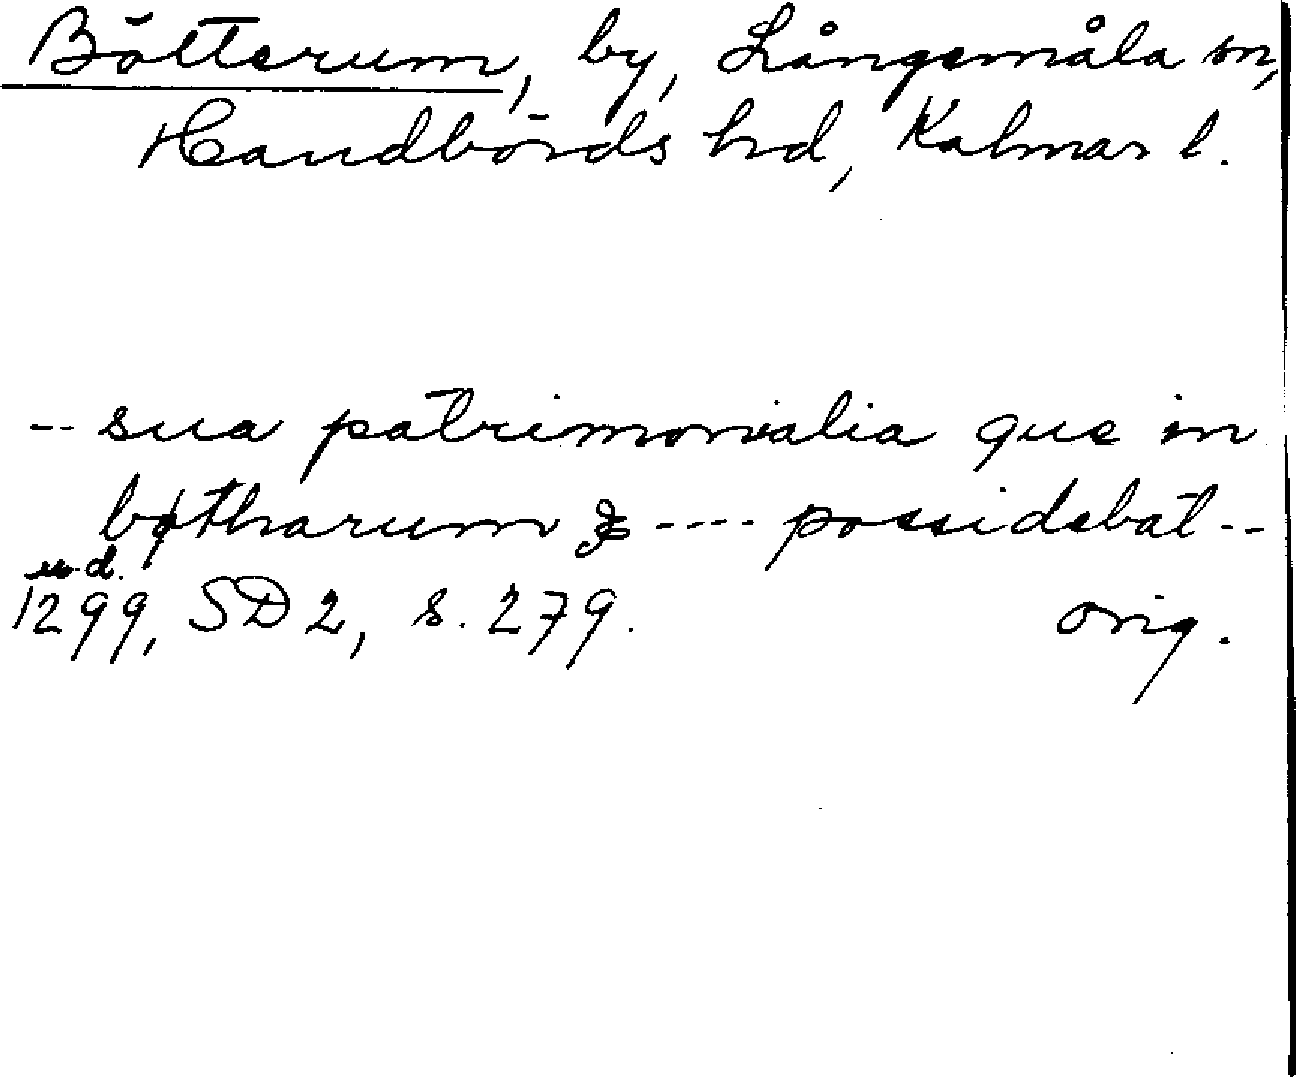 Bötterum, by, Långemåla sn,
Handbörds hd, Kalmar l.
-- sua patrimonialia que in
bøtharum & ---- possidebat --
u.d.
1299, SD 2, s. 279. orig.